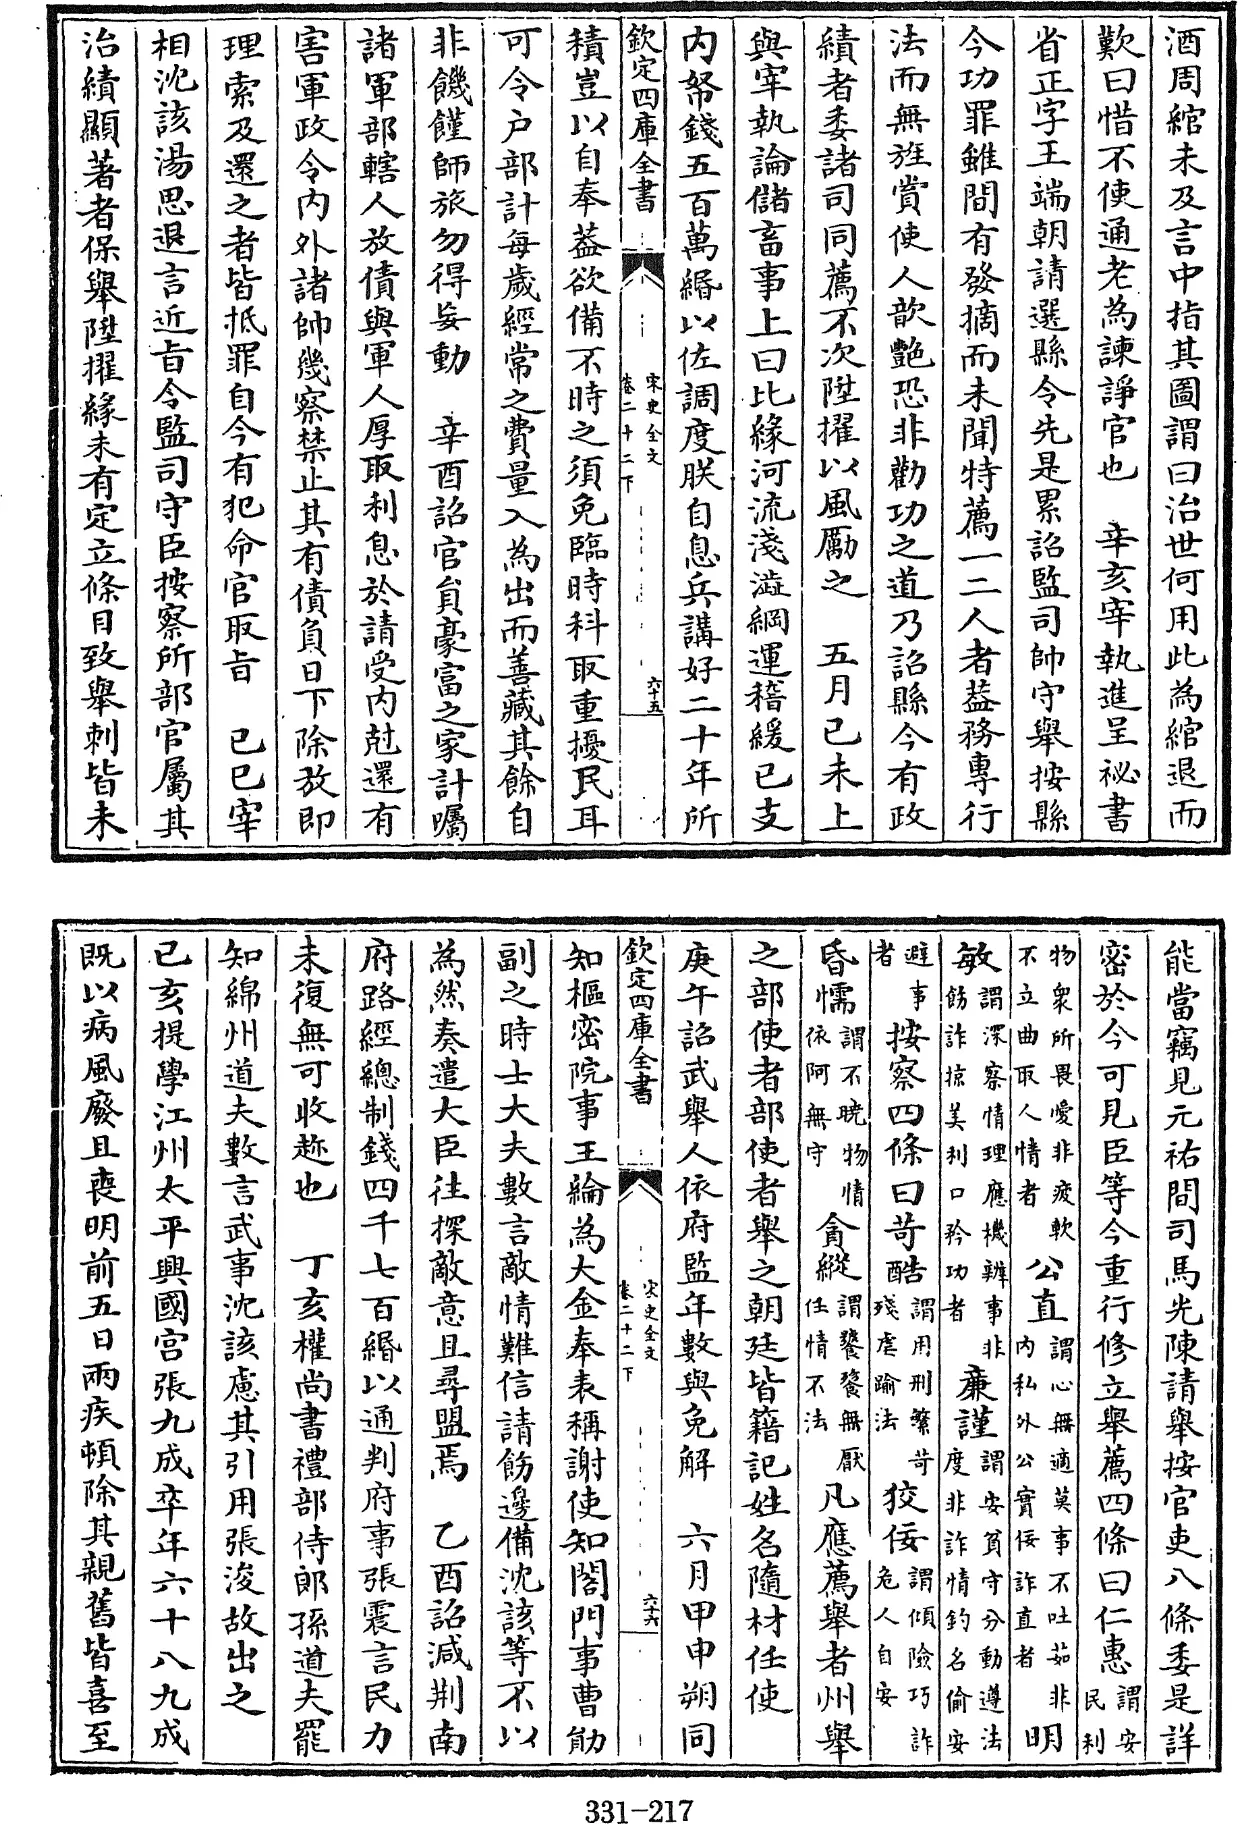 酒周綰未及言中指其圖謂曰治世何用此為綰退而
歎曰惜不使通老為諫諍官也　辛亥宰執進呈祕書
省正字王端朝請選縣令先是累詔監司帥守舉按縣
令功罪雖間有發摘而未聞特薦一二人者蓋務專行
法而無旌賞使人歆艷恐非勸功之道乃詔縣令有政
績者委諸司同薦不次陞擢以風厲之　五月己未上
與宰執論儲畜事上曰比緣河流淺澁綱運稽緩已支
内帑錢五百萬緡以佐調度朕自息兵講好二十年所
欽定四庫全書
宋史全文
卷二十二下
六十五
積豈以自奉蓋欲備不時之須免臨時科取重擾民耳
可令户部計每歲經常之費量入為出而善藏其餘自
非饑饉師旅勿得妄動　辛酉詔官員豪富之家計囑
諸軍部轄人放債與軍人厚取利息於請受内尅還有
害軍政令内外諸帥幾察禁止其有債負日下除放即
理索及還之者皆抵罪自今有犯命官取旨　己巳宰
相沈該湯思退言近旨令監司守臣按察所部官屬其
治績顯著者保舉陞擢緣未有定立條目致舉刺皆未
能當竊見元祐間司馬光陳請舉按官吏八條委是詳
密於今可見臣等今重行修立舉薦四條曰仁惠謂安民利
物衆所畏愛非疲軟不立曲取人情者公直謂心無適莫事不吐茹非内私外公實佞詐直者明
敏謂深察情理應機辦事非飾詐掠美利口矜功者廉謹謂安貧守分動遵法度非詐情釣名偷安
避事者按察四條曰苛酷謂用刑繁苛殘虐踰法狡佞謂傾險巧詐危人自安
昏懦謂不曉物情依阿無守貪縱謂饕餮無厭任情不法凡應薦舉者州舉
之部使者部使者舉之朝廷皆籍記姓名隨材任使
庚午詔武舉人依府監年數與免解　六月甲申朔同
欽定四庫全書
宋史全文
卷二十二下
六十六
知樞密院事王綸為大金奉表稱謝使知閤門事曹勛
副之時士大夫數言敵情難信請飭邊備沈該等不以
為然奏遣大臣往探敵意且尋盟焉　乙酉詔減荆南
府路經總制錢四千七百緡以通判府事張震言民力
未復無可收趂也　丁亥權尚書禮部侍郎孫道夫罷
知綿州道夫數言武事沈該慮其引用張浚故出之
己亥提學江州太平興國宫張九成卒年六十八九成
既以病風廢且喪明前五日兩疾頓除其親舊皆喜至
331-217